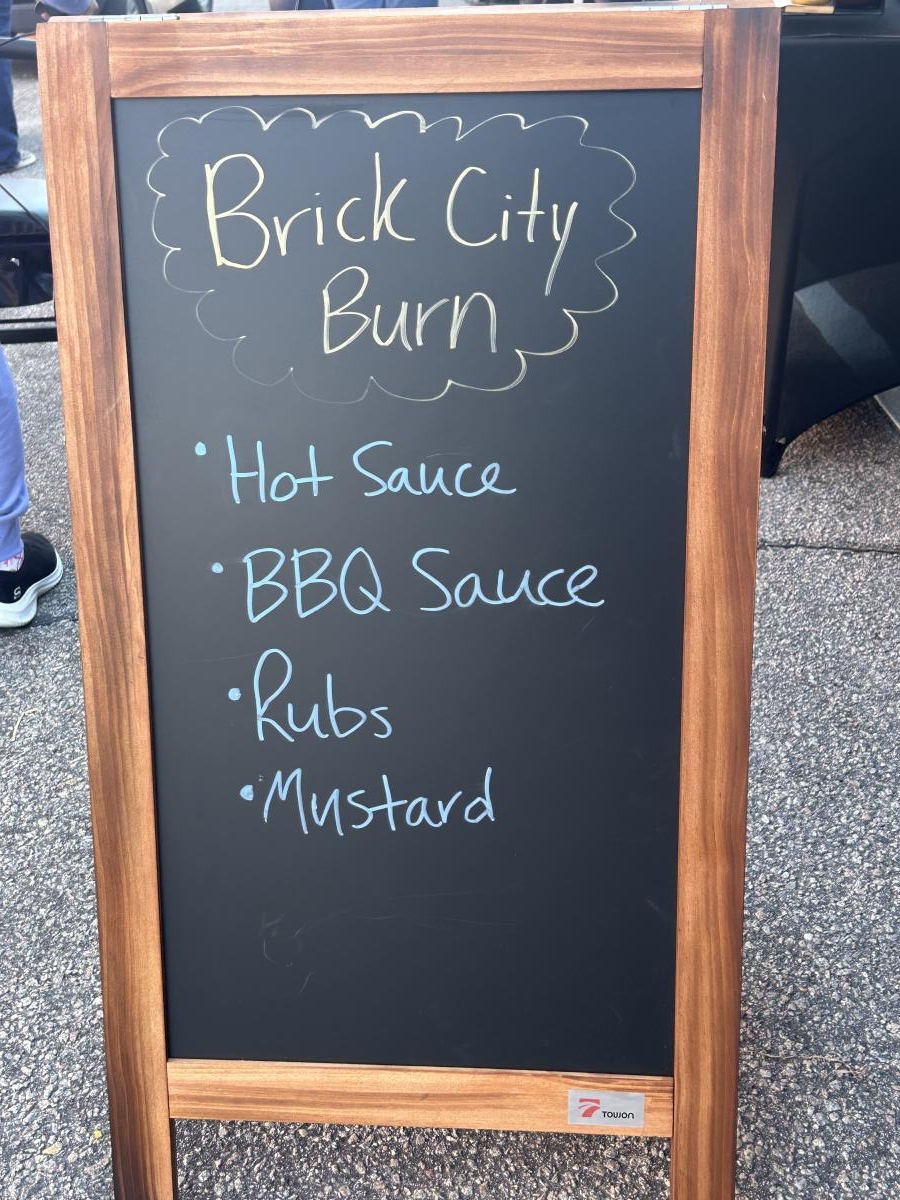 Brick City
Burn
• Hot Sauce
• BBQ Sauce
• Rubs
• Mustard
TOWON